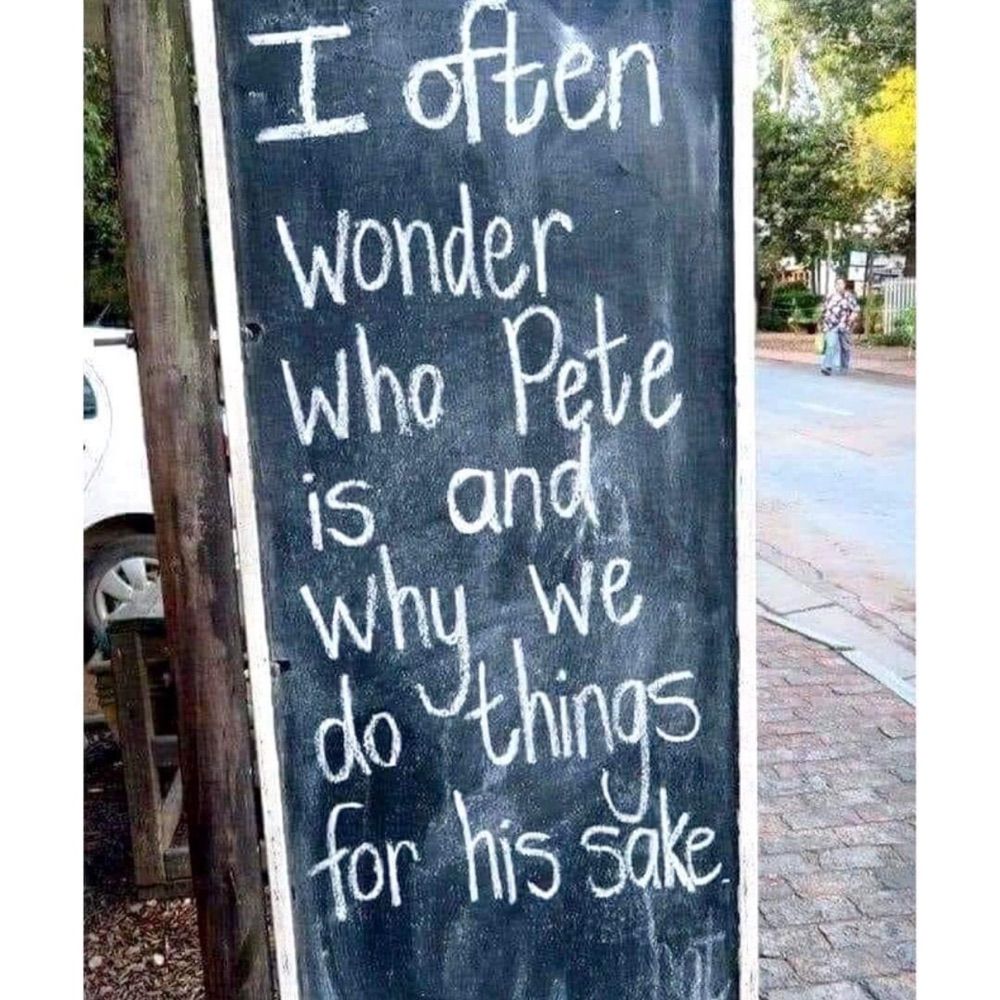 I often
wonder
who Pete
is and
why we
do things
for his sake.